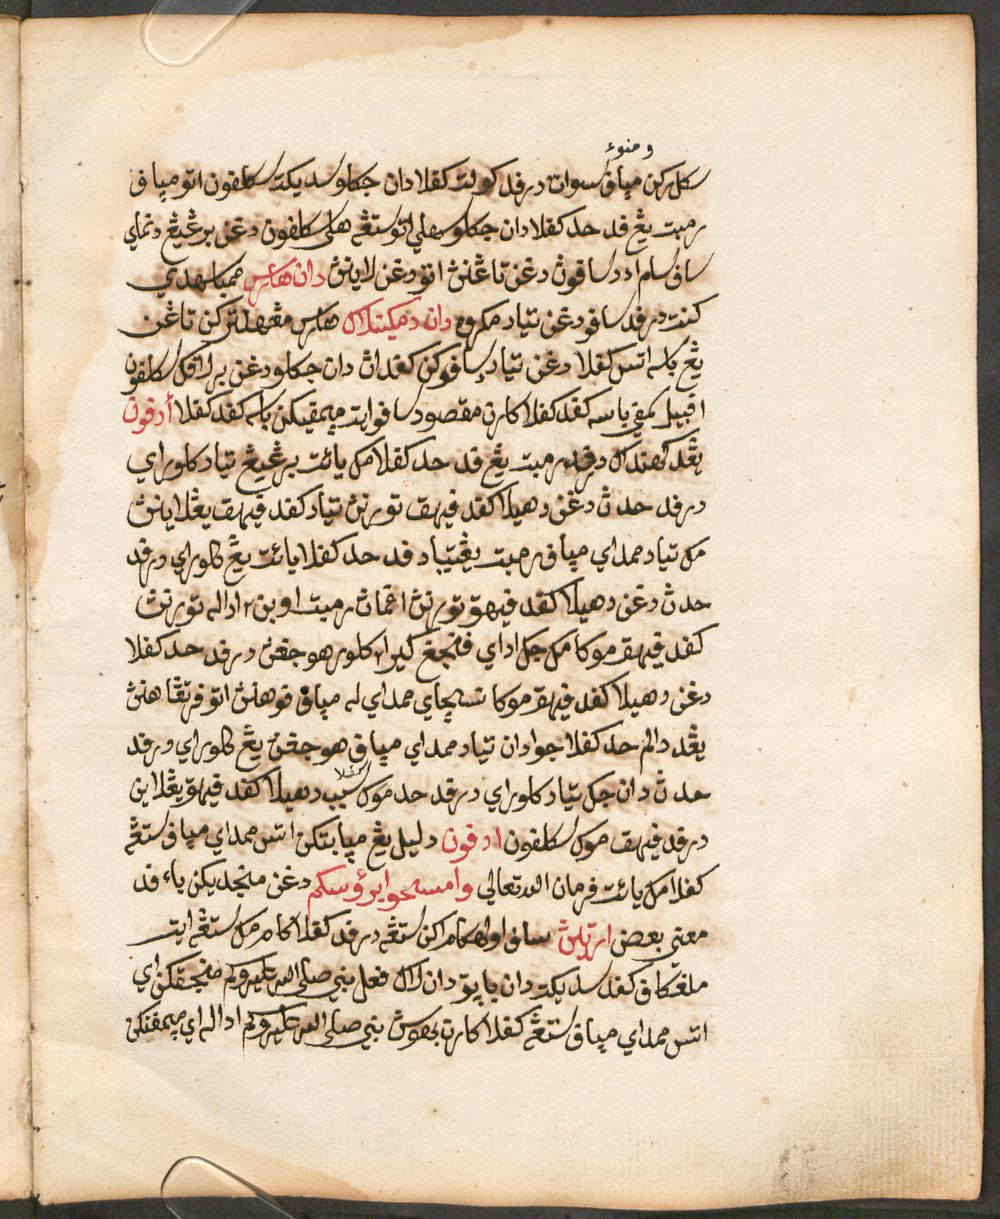 وضوء
سكلين مياڤ سوات درڤد كولت كفلا دان جكلو سديكت سكلڤون اتو مياڤ
رمبت يڠ ڤد حد كفلا دان جكلو سهلي اتو ستڠه هلي سكلڤون دغن برڠيڠ دنماي
ساڤ سام اد دساڤوڽ دغن تاڠنڽ اتو دغن لاينڽ دان هارس ممباسهدي
كنت درڤد ساڤو دغن تياد مكروه دان دمكينله هارس مڠهنترکن تاڠن
يڠ باسه اتس كفلا دغن تياد دساڤوكن كفداڽ دان جكلو دغن برلاڤيك سكلڤون
اڤبيل سمڤي باسه كفد كفلا كارن مقصود ساڤو ايت ميمڤيكن باسه كفد كفلا أدڤون
يڠدكهندق درڤد رمبت يڠ ڤد حد كفلا مك يائت برڠيڠ تياد كلوراي
درڤد حدڽ دغن دهيلا كفد ڤيهق تورنڽ تياد كفد ڤيهق يڠلاينڽ
مك تياد ممداي مياڤ رمبت يڠتياد ڤد حد كفلا يائت يڠ كلوراي درڤد
حدڽ دغن دهيلا كفد ڤيهق تورنڽ اڠڤاڽ رمبت اوبن٢ اداله تورنڽ
كفد ڤيهق موكا مك جك اداي ڤنجڠ كير٢ كلور هوجڠڽ درڤد حد كفلا
دغن دهيلا كفد ڤيهق موكا نسچاي ممداي له مياڤ ڤوهنڽ اتو ڤرتڠاهنڽ
يڠددالم حد كفلا جوا دان تياد ممداي مياڤ هوجڠڽ يڠ كلوراي درڤد
حدڽ دان جك تياد كلوراي درڤد حد موك سبب دهيلا كفد ڤيهق يڠلاين
كفلا
درڤد ڤيهق موك سكلڤون ادڤون دليل يڠ ميابتكن اتس ممداي مياڤ ستڠه
كفلا مك يائت فرمان الله تعالى وامسحوا برؤسكم دغن منجديكن باء ڤد
معنى بعض ارتيڽ ساڤ اولهكامو اكن ستڠه درڤد كفلا كامو مك ستڠه ايت
ملڠكاڤ كفد سديكت دان باڽق دان لاݢ فعل نبي صلى الله عليه وسلم منجڤكن اي
اتس ممداي مياڤ ستڠه كفلا كارن بهوسڽ نبي صلى الله عليه وسلم اداله اي ميمڤنكن